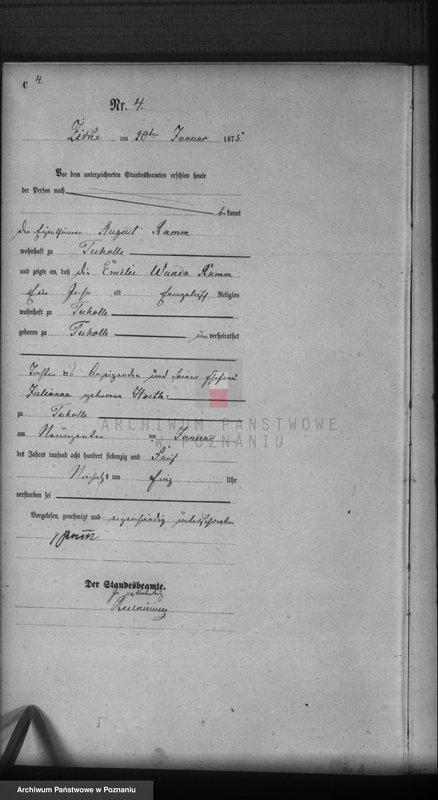 C 4.
Nr. 4.
Zirke am 20ten Januar 1875
Vor dem unterzeichneten Standesbeamten erschien heute
der Person nach
bekannt
August Ramm
wohnhaft zu Tucholle
und zeigte an, daß die Emilie Wanda Ramm
Ein Jahr alt Evangelisch Religion
wohnhaft zu Tucholle
geboren zu Tucholle unverheirathet
Tochter des Anzeigenden und seiner Ehefrau
Julianna geborene
zu Tucholle
am Neunzenten Januar
des Jahres tausend acht hundert siebenzig und Fünf
Nachts um Eins Uhr
verstorben sei
Vorgelesen, genehmigt und eigenhändig unterschrieben
Ramm
Der Standesbeamte.
ARCHIWUM PAŃSTWOWE
W POZNANIU
Archiwum Państwowe w Poznaniu